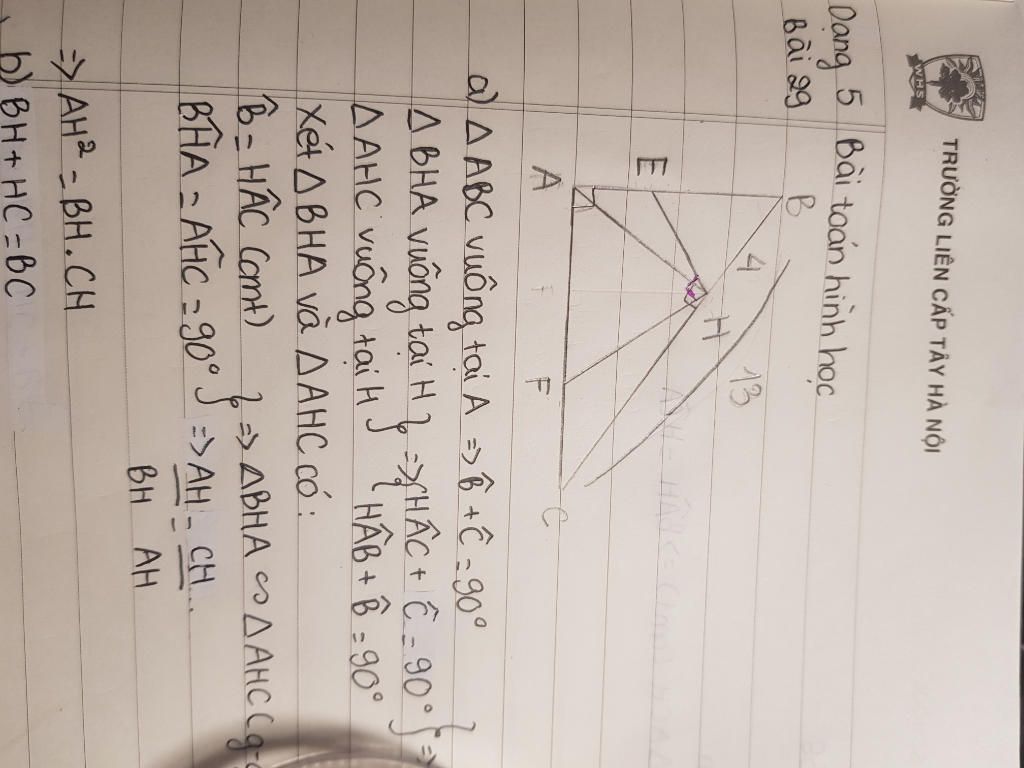 TRƯỜNG LIÊN CẤP TÂY HÀ NỘI
Dạng 5 Bài toán hình học
Bài 29
B
4
13
H
E
A
F
C
a) △ ABC vuông tại A => B̂ + Ĉ = 90°
△ BHA vuông tại H } => { HÂC + Ĉ = 90° } =>
△ AHC vuông tại H } { HÂB + B̂ = 90°
Xét △ BHA và △ AHC có:
B̂ = HÂC (cmt)
BĤA = AĤC = 90° } => △BHA ∽ △AHC (g-
=> AH/BH = CH/AH
=> AH² = BH.CH
b) BH + HC = BC